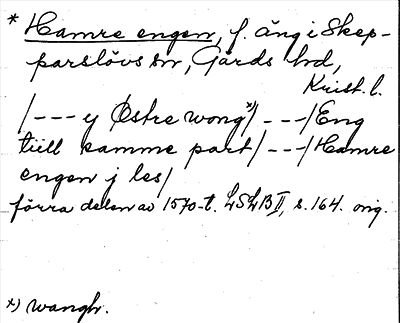 * Hamre engen, f. äng i Skep-
parslövs sn, Gärds hd,
Krist. l.
/--- y Østre wong x)/ ---/Eng
tiill kamme part/ ---/Hamre
engen j les/
förra delen av 1570-t. LSLB II, s. 164. orig.
x) wangh.